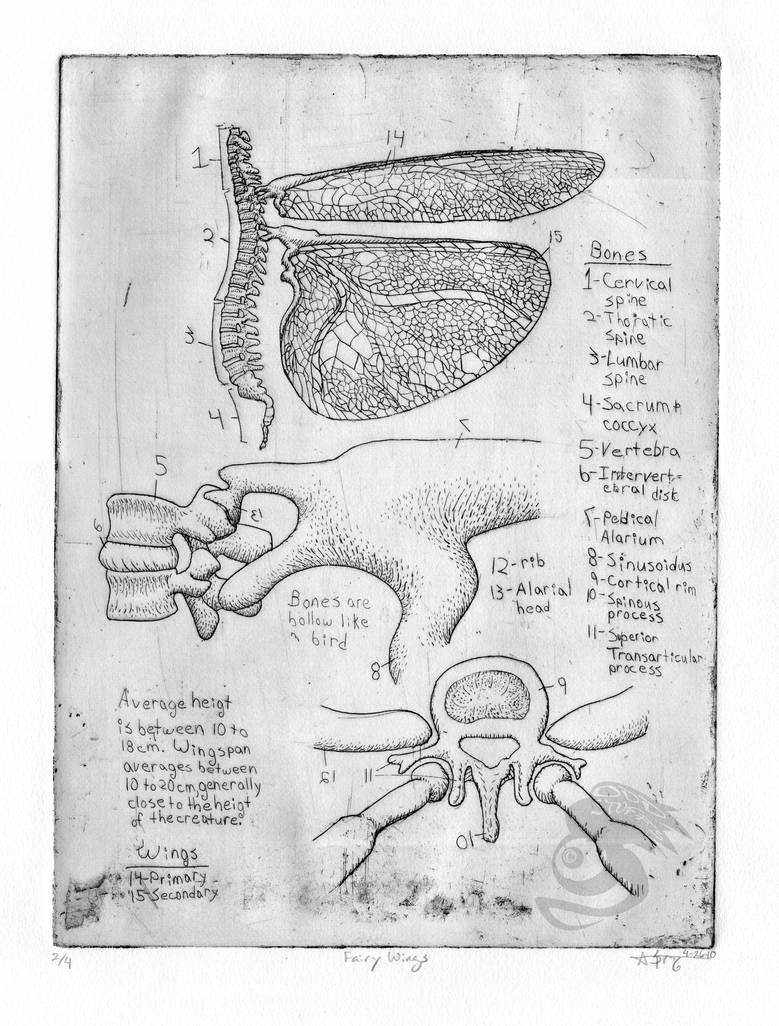 1
14
2
15
3
4
Bones
1-Cervical
spine
2-Thoratic
spine
3-Lumbar
spine
4-Sacrum+
coccyx
5-Vertebra
6-Intervert=
ebral disk
7-Pedical
Alarium
8-Sinusoidus
9-Cortical rim
10-Spinous
process
11-Superior
Transarticular
process
12-rib
13-Alarial
head
7
5
13
6
Bones are
hollow like
a bird
8
9
12
11
10
Average heigt
is between 10 to
18cm. Wingspan
averages between
10 to 20cm, generally
close to the heigt
of the creature.
Wings
14-Primary
15-Secondary
2/4
Fairy Wings
4-26-10